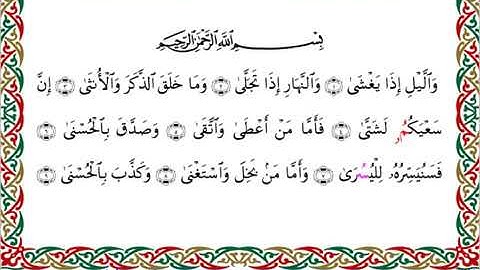 بِسْمِ اللَّهِ الرَّحْمَٰنِ الرَّحِيمِ
وَالَّيْلِ إِذَا يَغْشَىٰ ١ وَالنَّهَارِ إِذَا تَجَلَّىٰ ٢ وَمَا خَلَقَ الذَّكَرَ وَالْأُنثَىٰ ٣ إِنَّ
سَعْيَكُمُۥ لَشَتَّىٰ ٤ فَأَمَّا مَنْ أَعْطَىٰ وَاتَّقَىٰ ٥ وَصَدَّقَ بِالْحُسْنَىٰ ٦
فَسَنُيَسِّرُهُۥ لِلْيُسُرَىٰ ٧ وَأَمَّا مَنۢ بَخِلَ وَاسْتَغْنَىٰ ٨ وَكَذَّبَ بِالْحُسْنَىٰ ٩